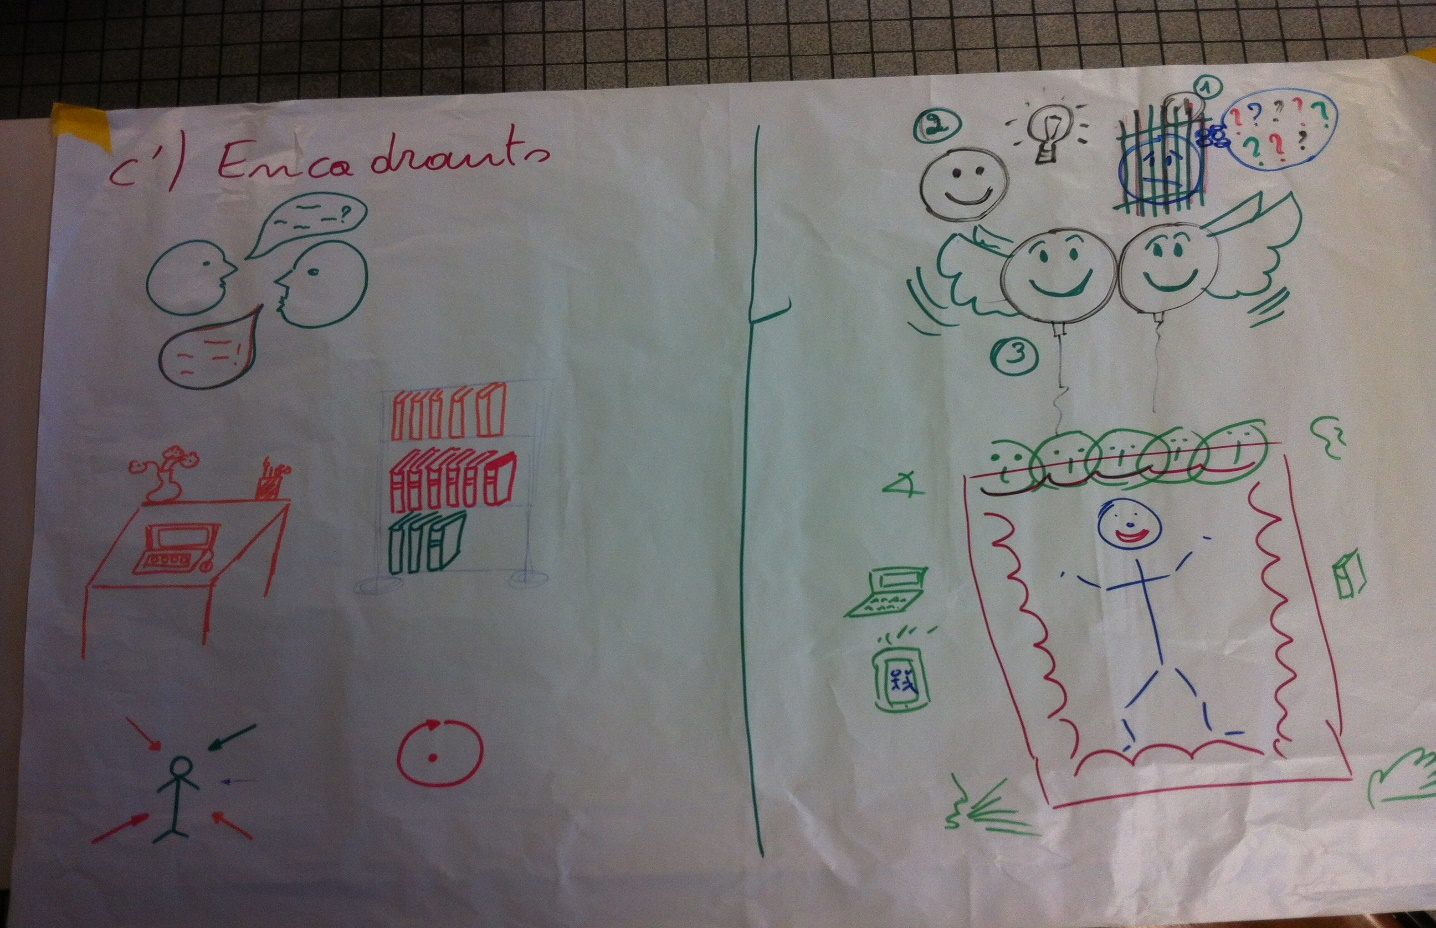 c') Encadrants
?
!
2
1
? ? ? ? ?
? ? ?
3